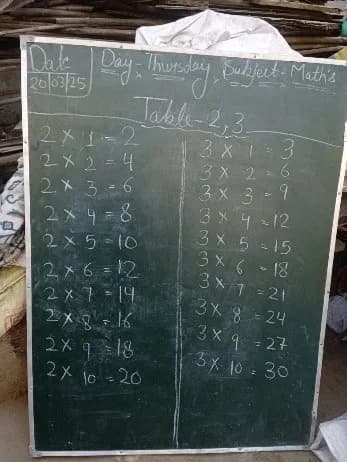 Date
20/03/25
Day - Thursday, Subject - Math's
Table - 2, 3
2 × 1 = 2
2 × 2 = 4
2 × 3 = 6
2 × 4 = 8
2 × 5 = 10
2 × 6 = 12
2 × 7 = 14
2 × 8 = 16
2 × 9 = 18
2 × 10 = 20
3 × 1 = 3
3 × 2 = 6
3 × 3 = 9
3 × 4 = 12
3 × 5 = 15
3 × 6 = 18
3 × 7 = 21
3 × 8 = 24
3 × 9 = 27
3 × 10 = 30